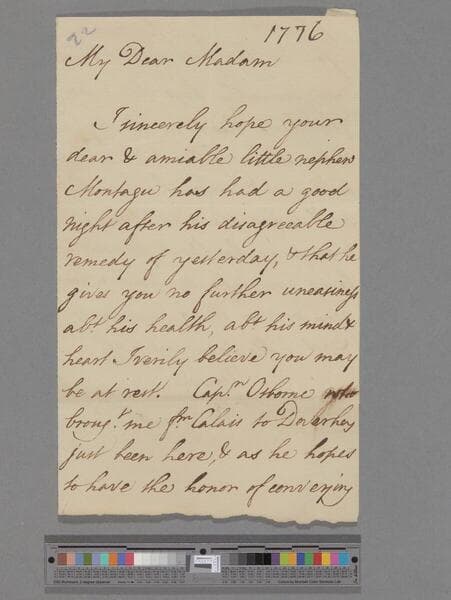 22
1776
My Dear Madam
I sincerely hope your
dear & amiable little nephew
Montagu has had a good
night after his disagreeable
remedy of yesterday, & that he
gives you no further uneasiness
abt. his health, abt his mind &
heart I verily believe you may
be at rest. Capn. Osborne who
brougt. me frm Calais to Dover has
just been here, & as he hopes
to have the honor of conveying